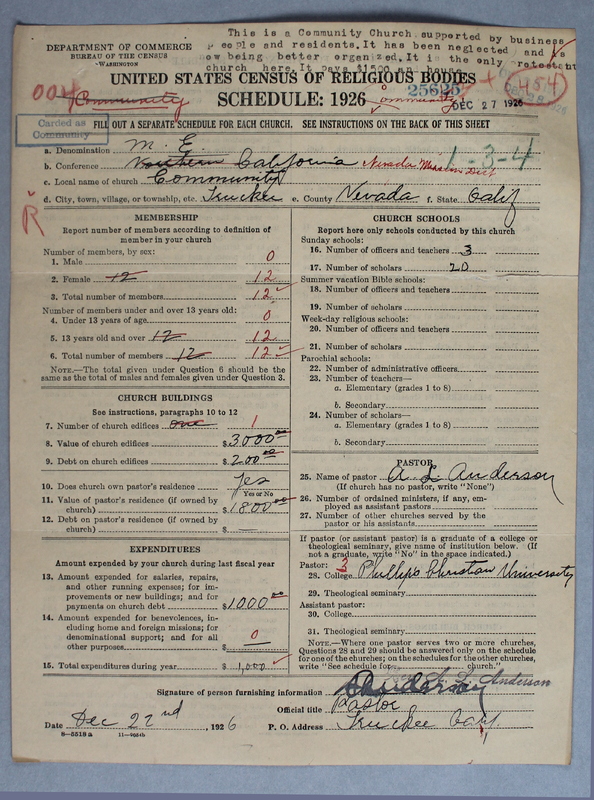 This is a Community Church supported by business
people and residents. It has been neglected and is
now being better organized. It is the only protestant
church here. It pays $1500 and house.
DEPARTMENT OF COMMERCE
BUREAU OF THE CENSUS
WASHINGTON
UNITED STATES CENSUS OF RELIGIOUS BODIES
004 Community
SCHEDULE: 1926
25626
Community
DEC 27 1926
454
Carded as
Community
FILL OUT A SEPARATE SCHEDULE FOR EACH CHURCH. SEE INSTRUCTIONS ON THE BACK OF THIS SHEET
a. Denomination M. E.
1-3-4
b. Conference Northern California Nevada Mission Dist
c. Local name of church Community
d. City, town, village, or township, etc. Truckee e. County Nevada f. State Calif
R
MEMBERSHIP
Report number of members according to definition of
member in your church
Number of members, by sex:
1. Male 0
2. Female 12 12
3. Total number of members 12
Number of members under and over 13 years old:
4. Under 13 years of age 0
5. 13 years old and over 12 12
6. Total number of members 12 12
NOTE.—The total given under Question 6 should be the
same as the total of males and females given under Question 3.
CHURCH BUILDINGS
See instructions, paragraphs 10 to 12
7. Number of church edifices one 1
8. Value of church edifices $ 3000.00
9. Debt on church edifices $ 200.00
10. Does church own pastor's residence Yes
Yes or No
11. Value of pastor's residence (if owned by
church) $ 1800.00
12. Debt on pastor's residence (if owned by
church) $ —
EXPENDITURES
Amount expended by your church during last fiscal year
13. Amount expended for salaries, repairs,
and other running expenses; for im-
provements or new buildings; and for
payments on church debt $ 1000.00
14. Amount expended for benevolences, in-
cluding home and foreign missions; for
denominational support; and for all
other purposes $ 0
15. Total expenditures during year $ 1,000
CHURCH SCHOOLS
Report here only schools conducted by this church
Sunday schools:
16. Number of officers and teachers 3
17. Number of scholars 20
Summer vacation Bible schools:
18. Number of officers and teachers
19. Number of scholars
Week-day religious schools:
20. Number of officers and teachers
21. Number of scholars
Parochial schools:
22. Number of administrative officers
23. Number of teachers—
a. Elementary (grades 1 to 8)
b. Secondary
24. Number of scholars—
a. Elementary (grades 1 to 8)
b. Secondary
PASTOR
25. Name of pastor A L Anderson
(If church has no pastor, write "None")
26. Number of ordained ministers, if any, em-
ployed as assistant pastors
27. Number of other churches served by the
pastor or his assistants
If pastor (or assistant pastor) is a graduate of a college or
theological seminary, give name of institution below. (If
not a graduate, write "No" in the space indicated.)
Pastor: 3
28. College Phillips Christian University
29. Theological seminary
Assistant pastor:
30. College
31. Theological seminary
NOTE.—Where one pastor serves two or more churches,
Questions 28 and 29 should be answered only on the schedule
for one of the churches; on the schedules for the other churches,
write "See schedule for church."
A. L. Anderson
Signature of person furnishing information
Official title Pastor
Date Dec 22nd, 1926 P. O. Address Truckee Calif
8—5518 a